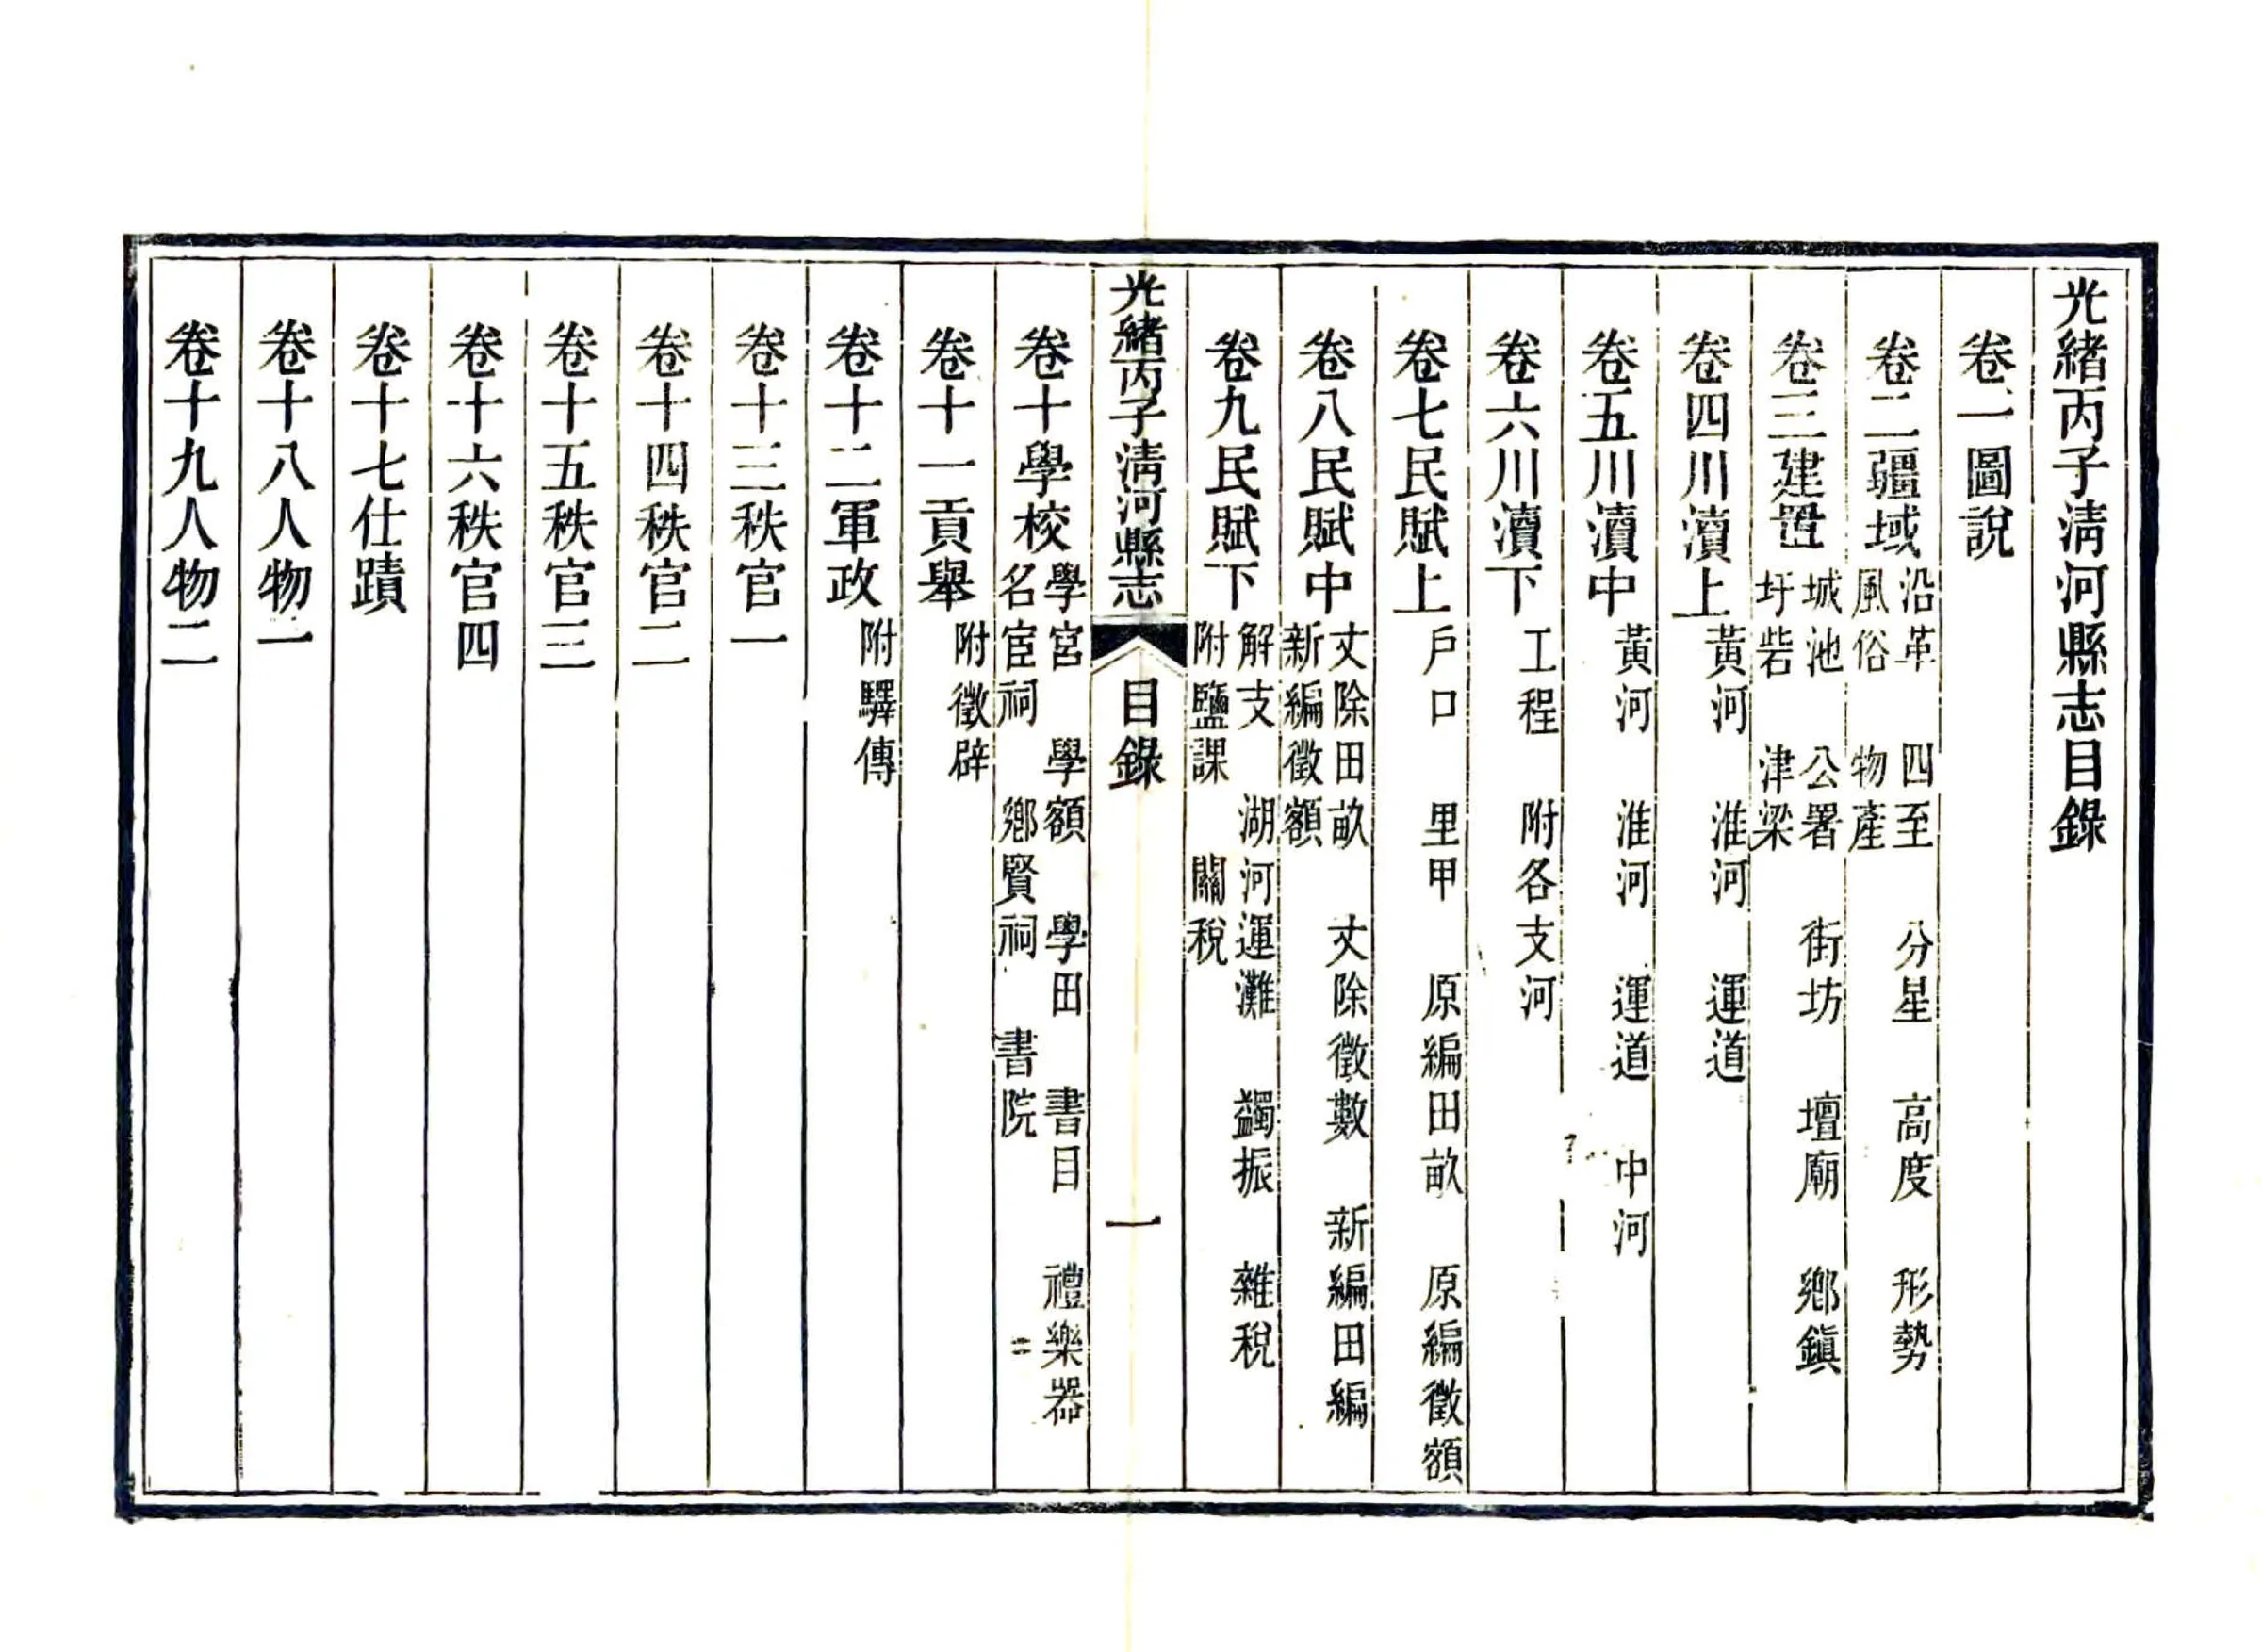 光緒丙子淸河縣志目錄
卷一圖說
卷二疆域 沿革 四至 分星 高度 形勢
風俗 物產
卷三建置 城池 公署 街坊 壇廟 鄕鎭
圩砦 津梁
卷四川瀆上 黃河 淮河 運道
卷五川瀆中 黃河 淮河 運道 中河
卷六川瀆下 工程 附各支河
卷七民賦上 戶口 里甲 原編田畝 原編徵額
卷八民賦中 丈除田畝 丈除徵數 新編田編
新編徵額
卷九民賦下 解支 湖河運灘 蠲振 雜稅
附鹽課 關稅
光緒丙子淸河縣志 目錄 一
卷十學校 學宮 學額 學田 書目 禮樂器
名宦祠 鄕賢祠 書院
卷十一貢舉 附徵辟
卷十二軍政 附驛傳
卷十三秩官一
卷十四秩官二
卷十五秩官三
卷十六秩官四
卷十七仕蹟
卷十八人物一
卷十九人物二